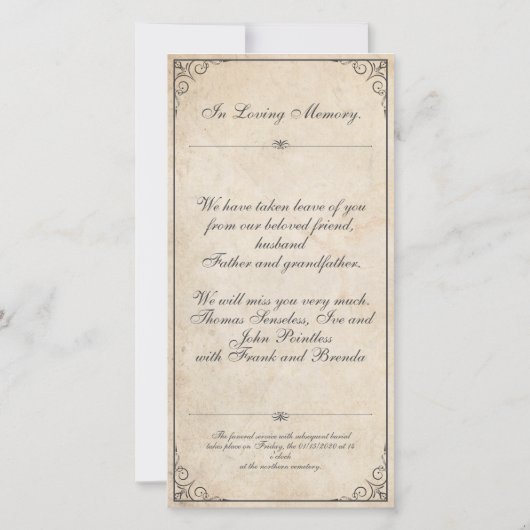 In Loving Memory.
We have taken leave of you
from our beloved friend,
husband
Father and grandfather.
We will miss you very much.
Thomas Senseless, Ive and
John Pointless
with Frank and Brenda
The funeral service with subsequent burial
takes place on Friday, the 01/15/2020 at 14
o'clock
at the northern cemetery.